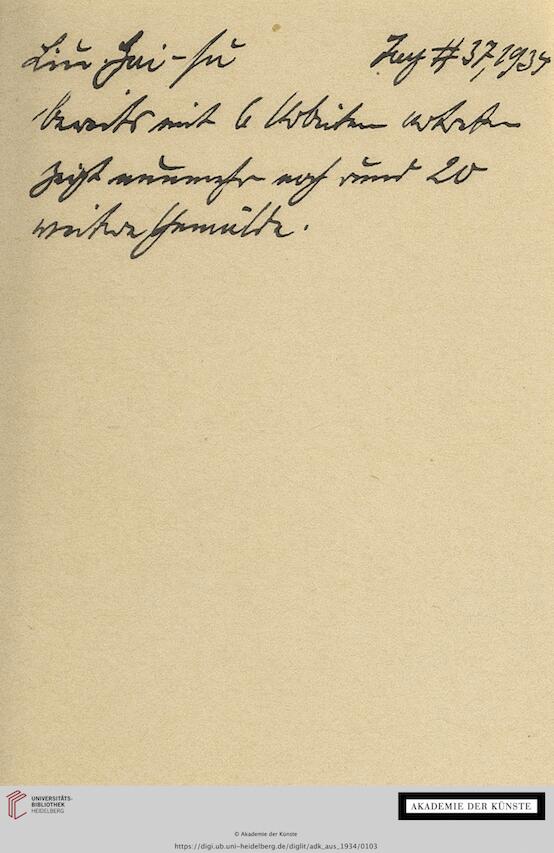 Liu Hai-su # 37, 1934
bereits mit 6 Arbeiten vertreten
zeigt nunmehr noch rund 20
weitere Gemälde.
UNIVERSITÄTS-
BIBLIOTHEK
HEIDELBERG
AKADEMIE DER KÜNSTE
© Akademie der Künste
https://digi.ub.uni-heidelberg.de/diglit/adk_aus_1934/0103